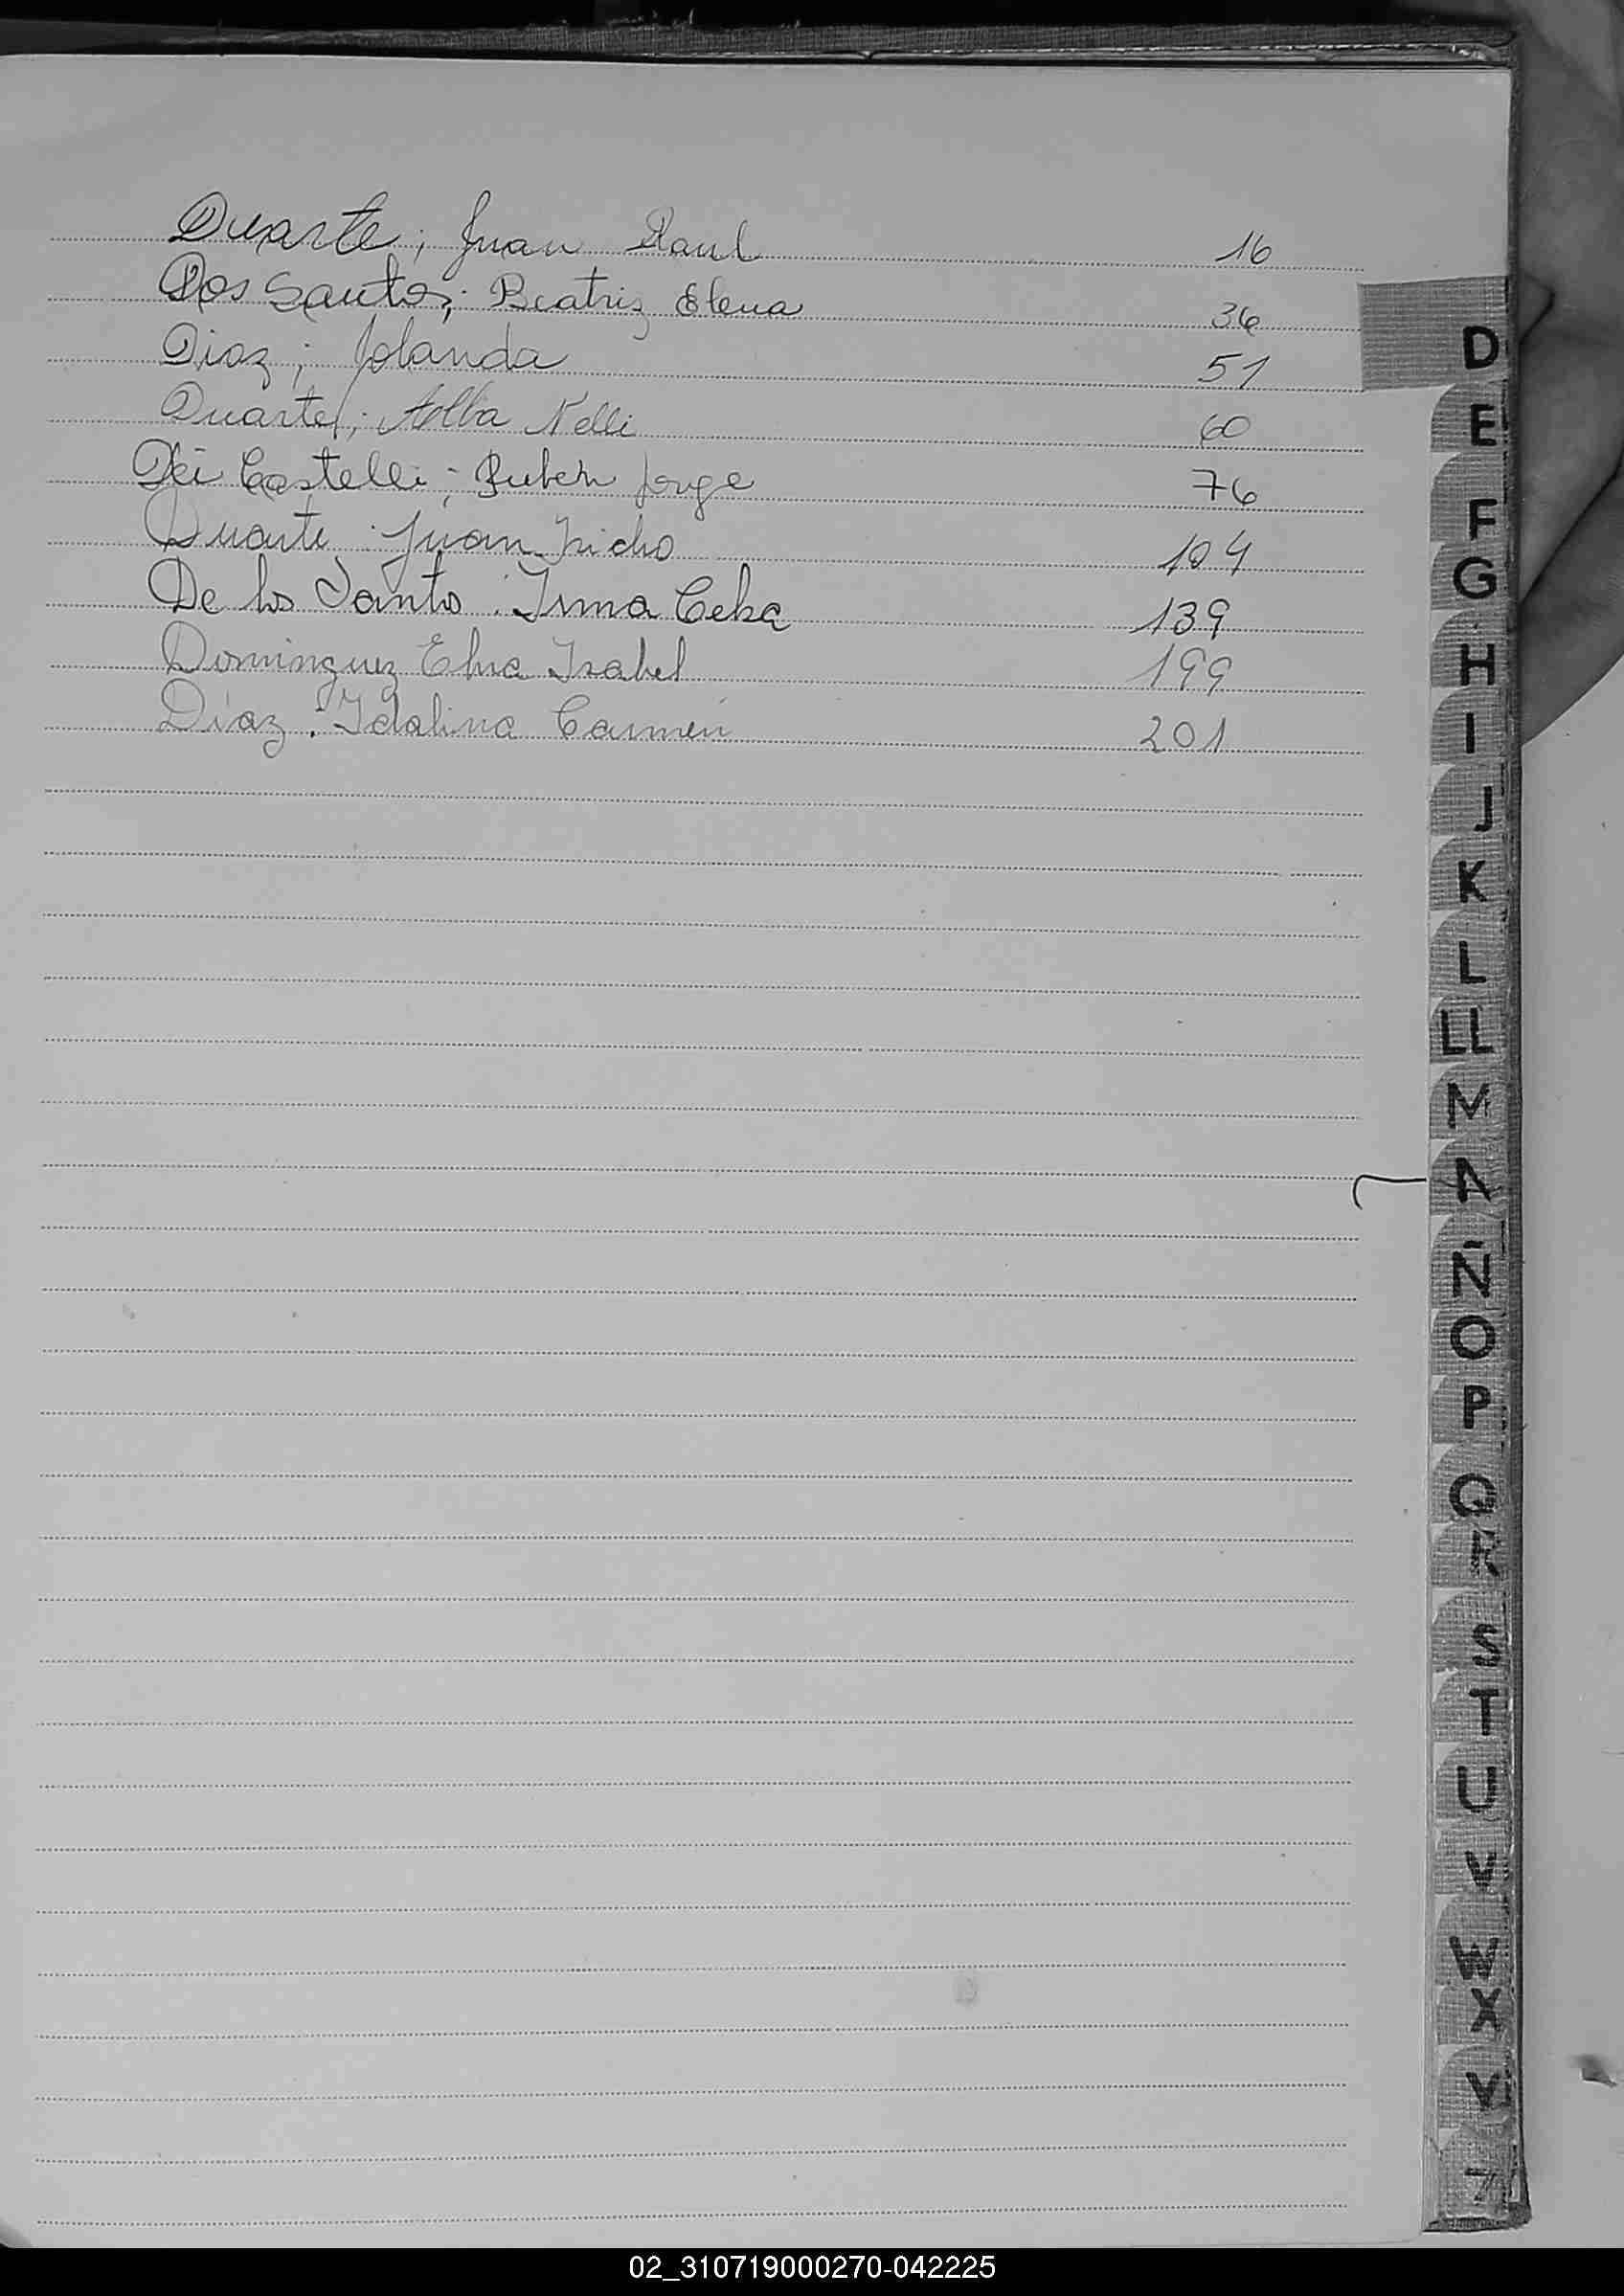 Duarte; Juan Raul 16
Dos Santos; Beatriz Elena 36
Diaz; Jolanda 51
Duarte; Alba Nelli 60
Dei Castelli; Ruben Jorge 76
Duarte Juan 104
De los Santo. Irma Celia 139
Dominguez Elva Isabel 199
Díaz. Idalina Carmen 201
D
E
F
G
H
I
J
K
L
LL
M
Ñ
O
P
Q
R
S
T
U
V
W
X
Y
Z
02_310719000270-042225